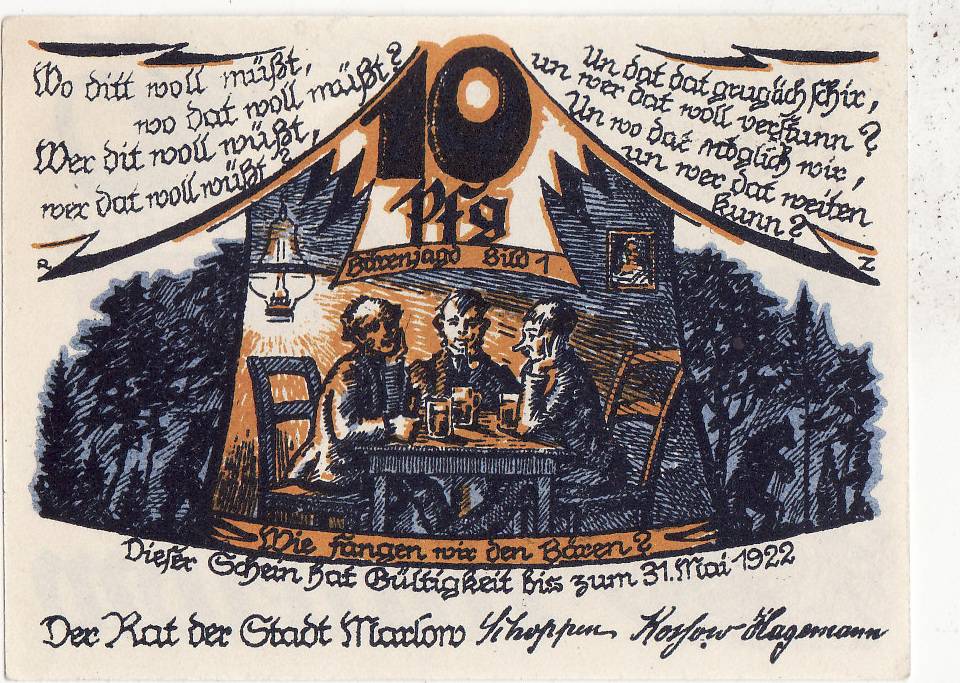 Wo ditt woll müßt,
wo dat woll müßt?
Wer dit woll wüßt,
wer dat woll wüßt?
10
Pfg
Un dat dat grugäch schir,
un wer dat woll verstunn?
Un wo dat möglich wir,
un wer dat weiten
kunn?
R
Z
Bärenjagd Bild 1
Wie fangen wir den Bären?
Dieser Schein hat Gültigkeit bis zum 31. Mai 1922
Der Rat der Stadt Marlow Schoppen Kossow Hagemann